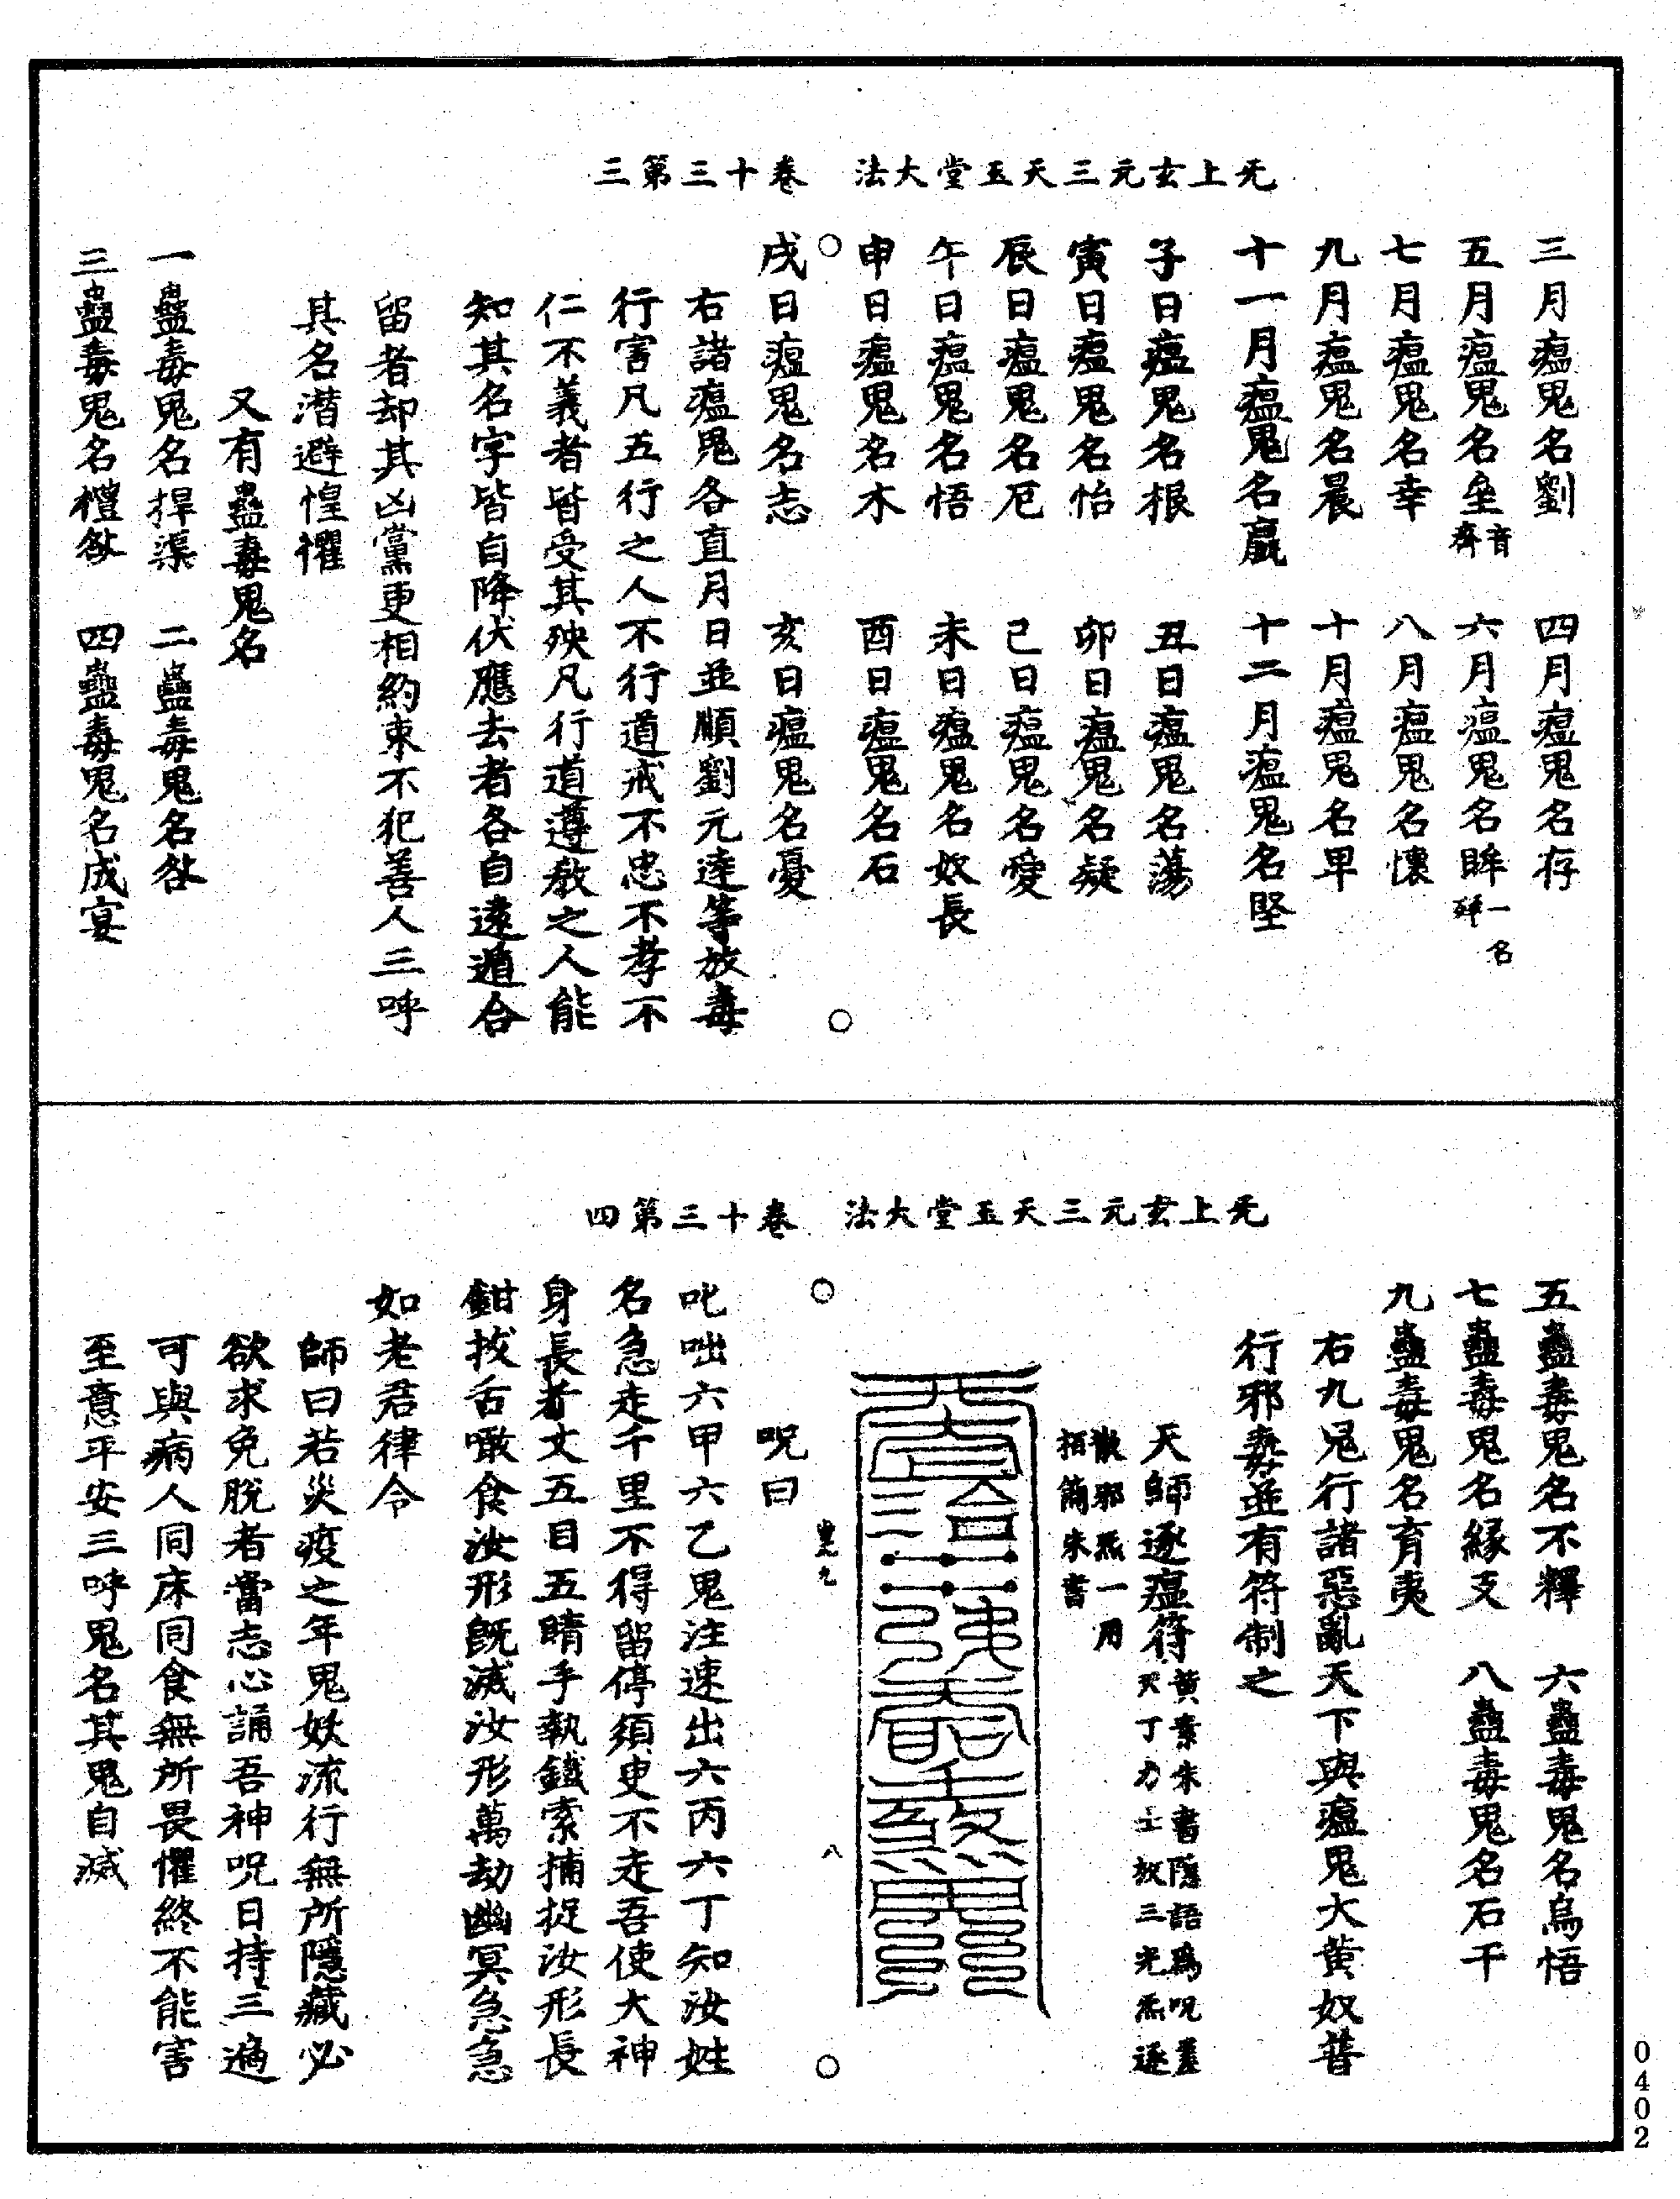 无上玄元三天玉堂大法　卷十三第三
三月瘟鬼名劉　四月瘟鬼名存
五月瘟鬼名垒音齊　六月瘟鬼名眸一名
七月瘟鬼名幸　八月瘟鬼名懷
九月瘟鬼名晨　十月瘟鬼名旱
十一月瘟鬼名羸　十二月瘟鬼名堅
子日瘟鬼名根　丑日瘟鬼名蕩
寅日瘟鬼名怡　卯日瘟鬼名凝
辰日瘟鬼名厄　巳日瘟鬼名愛
午日瘟鬼名悟　未日瘟鬼名奴長
申日瘟鬼名木　酉日瘟鬼名石
戌日瘟鬼名志　亥日瘟鬼名憂
右諸瘟鬼各直月日並順劉元達等放毒
行害凡五行之人不行道戒不忠不孝不
仁不義者皆受其殃凡行道遵敎之人能
知其名字皆自降伏應去者各自遠遁合
留者却其凶黨更相約束不犯善人三呼
其名潛避惶懼
又有蠱毒鬼名
一蠱毒鬼名捍渠　二蠱毒鬼名咎
三蠱毒鬼名禮咎　四蠱毒鬼名成宴
无上玄元三天玉堂大法　卷十三第四
五蠱毒鬼名不釋　六蠱毒鬼名烏悟
七蠱毒鬼名緣支　八蠱毒鬼名石千
九蠱毒鬼名育夷
右九鬼行諸惡亂天下與瘟鬼大黃奴普
行邪毒並有符制之
天師逐瘟符黃素朱書隱語爲呪蓋
天丁力士放三光炁逐
散邪炁一用
栢簡朱書
呪曰
叱咄六甲六乙鬼注速出六丙六丁知汝姓
名急走千里不得留停須臾不走吾使大神
身長者丈五目五睛手執鐵索捕捉汝形長
鉗拔舌噉食汝形旣滅汝形萬劫幽冥急急
如老君律令
師曰若災疫之年鬼妖流行無所隱藏必
欲求免脫者當志心誦吾神呪日持三遍
可與病人同床同食無所畏懼終不能害
至意平安三呼鬼名其鬼自滅
八
0402